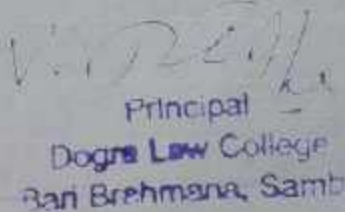 Principal
Dogra Law College
Bari Brehmana, Samb